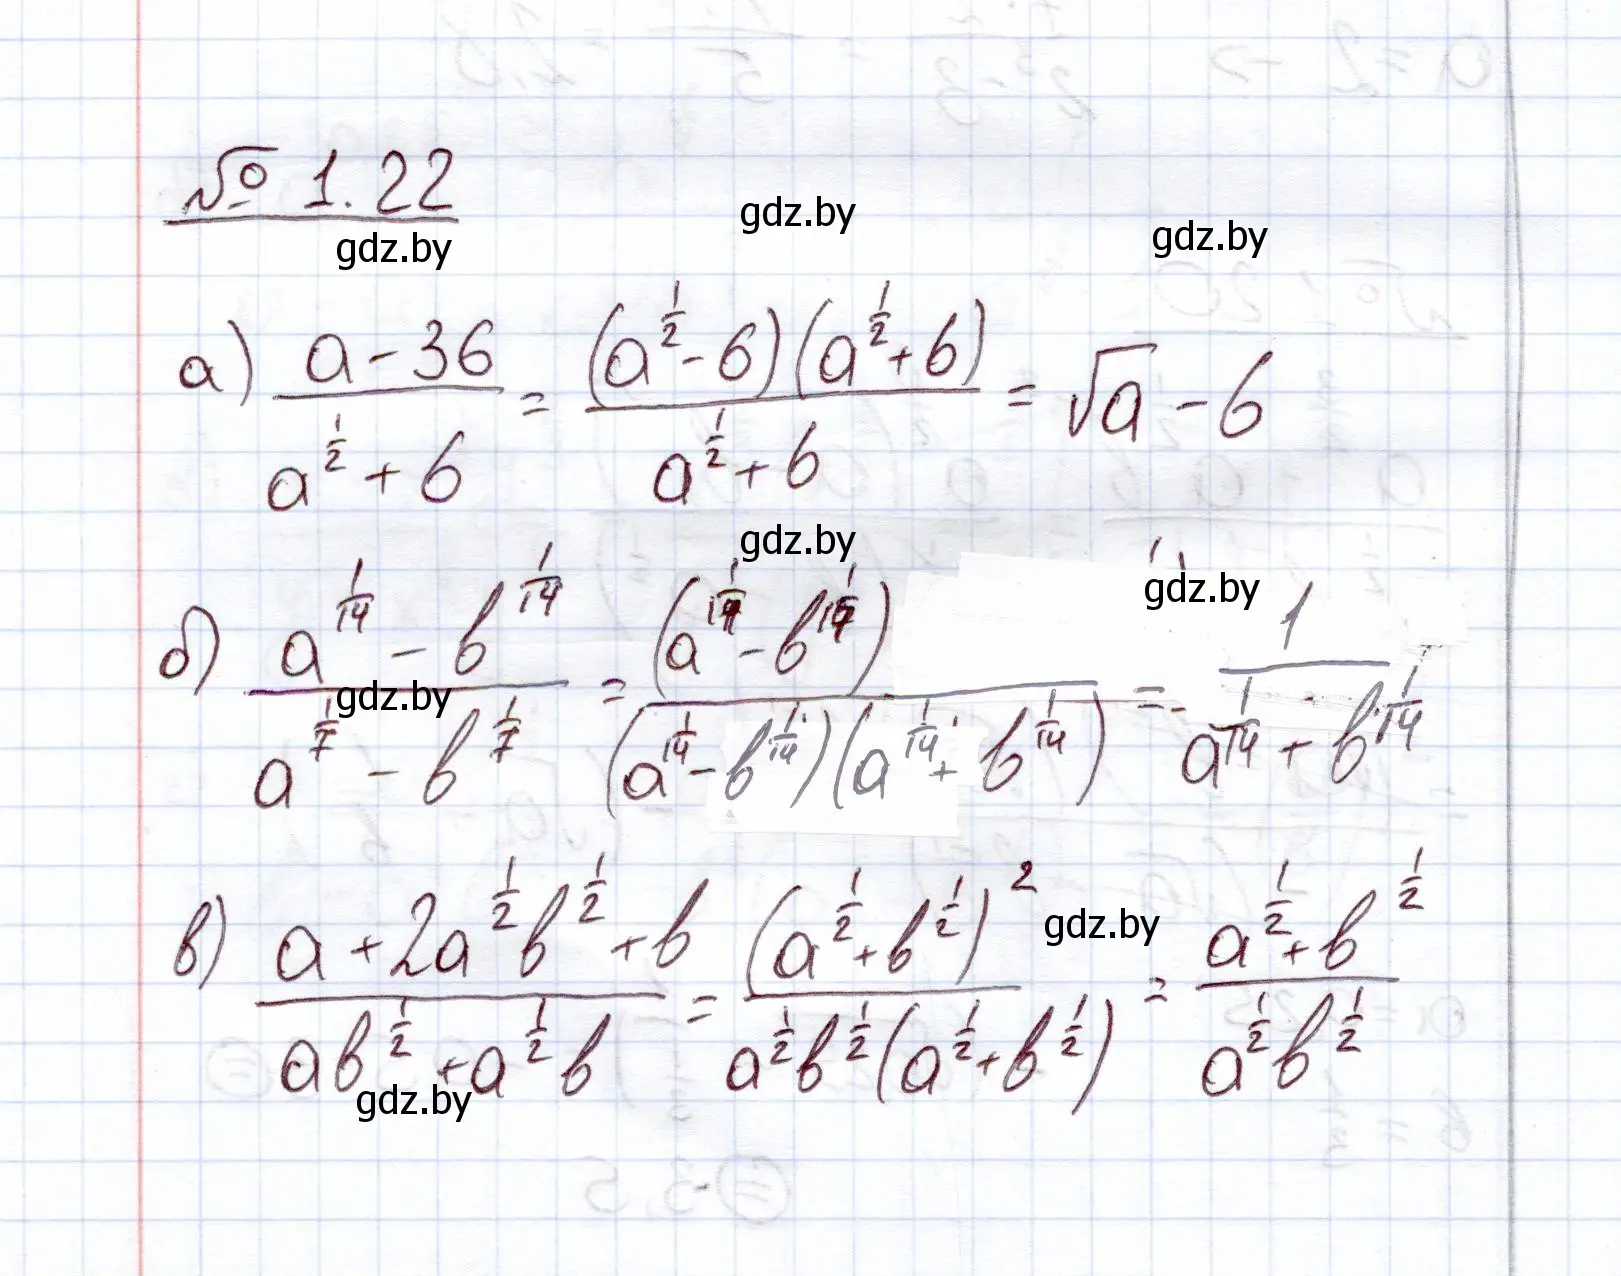 № 1.22
gdz.by gdz.by gdz.by
а) (a - 36)/(a^(1/2) + 6) = ((a^(1/2) - 6)(a^(1/2) + 6))/(a^(1/2) + 6) = √a - 6
gdz.by gdz.by
б) (a^(1/14) - b^(1/14))/(a^(1/7) - b^(1/7)) = (a^(1/14) - b^(1/14))/((a^(1/14) - b^(1/14))(a^(1/14) + b^(1/14))) = 1/(a^(1/14) + b^(1/14))
gdz.by
в) (a + 2a^(1/2)b^(1/2) + b)/(ab^(1/2) + a^(1/2)b) = (a^(1/2) + b^(1/2))^2/(a^(1/2)b^(1/2)(a^(1/2) + b^(1/2))) = (a^(1/2) + b^(1/2))/(a^(1/2)b^(1/2))
gdz.by
gdz.by